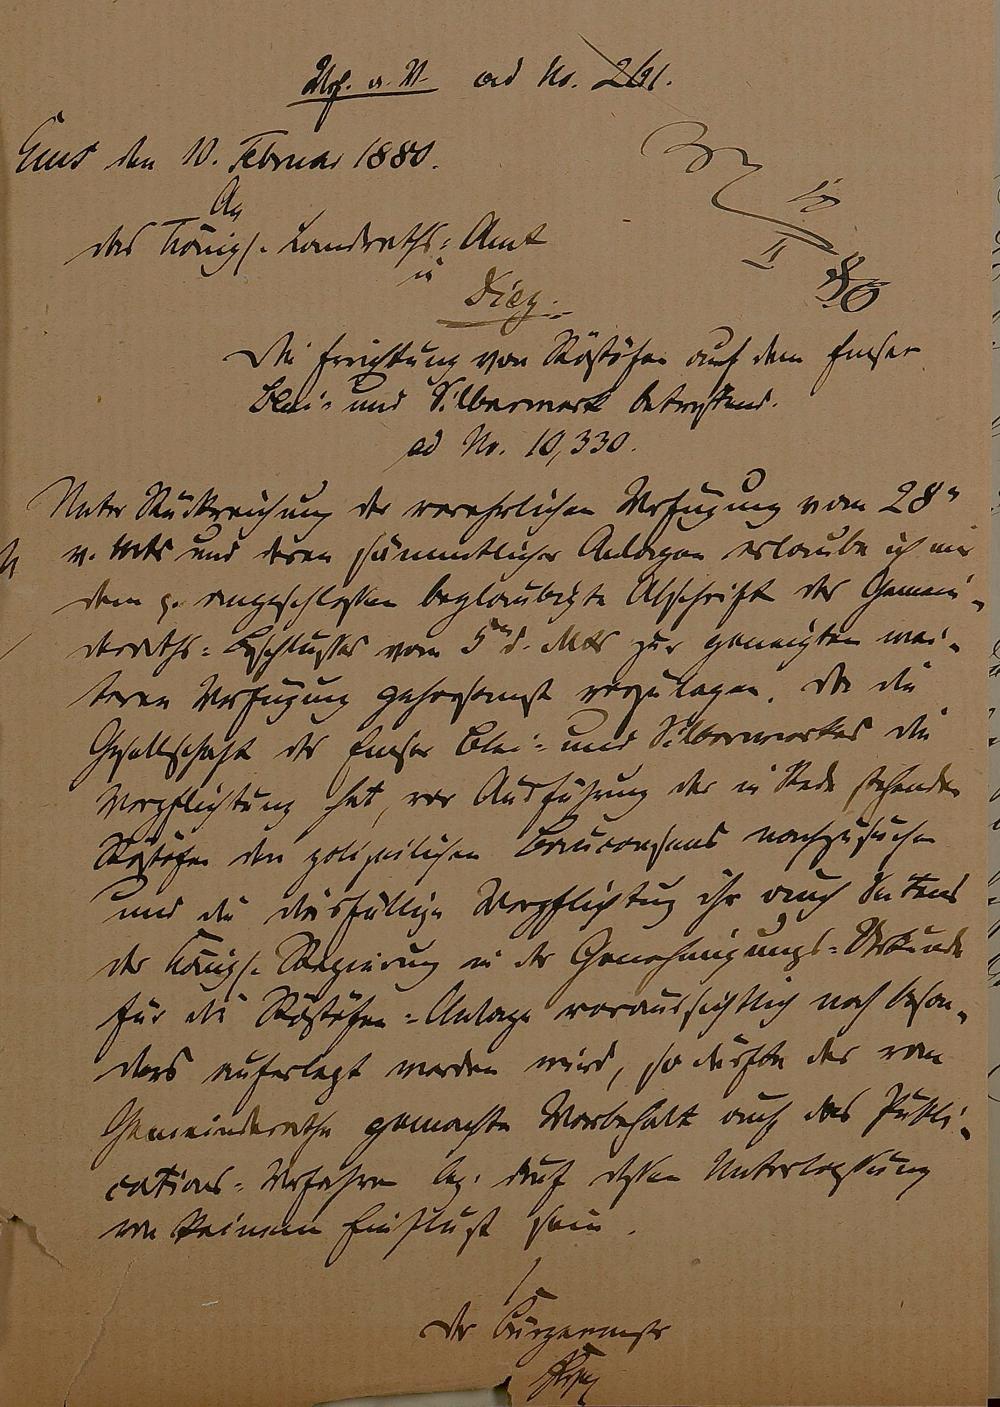 ad No. 261.
Ems den 10. Februar 1880.
An
das Königl. Landraths-Amt
zu
Diez.
Die Errichtung von Röstöfen auf dem Emser
Blei- und Silberwerk betreffend.
ad No. 10,330.
Unter Rückreichung der verehrlichen Verfügung vom 28n
v. Mts und deren sämmtlicher Anlagen erlaube ich mir
dem angeschlossen beglaubigte Abschrift des Gemein-
deraths-Beschlusses vom 5n d. Mts zur geneigten wei-
teren Verfügung gehorsamst vorzulegen. Da die
Gesellschaft des Emser Blei- und Silberwerkes die
Verpflichtung hat, vor Ausführung der in Rede stehenden
Röstöfen den polizeilichen Bauconsens nachzusuchen
und die diesfällige Verpflichtung ihr auch Seitens
der Königl. Regierung in der Genehmigungs-Urkunde
für die Röstöfen-Anlage voraussichtlich noch beson-
ders auferlegt werden wird, so dürfte der vom
Gemeinderathe gemachte Vorbehalt auf das Publi-
cations-Verfahren bez. auf dessen Unterlassung
von keinem Einfluß sein.
Der Bürgermeister